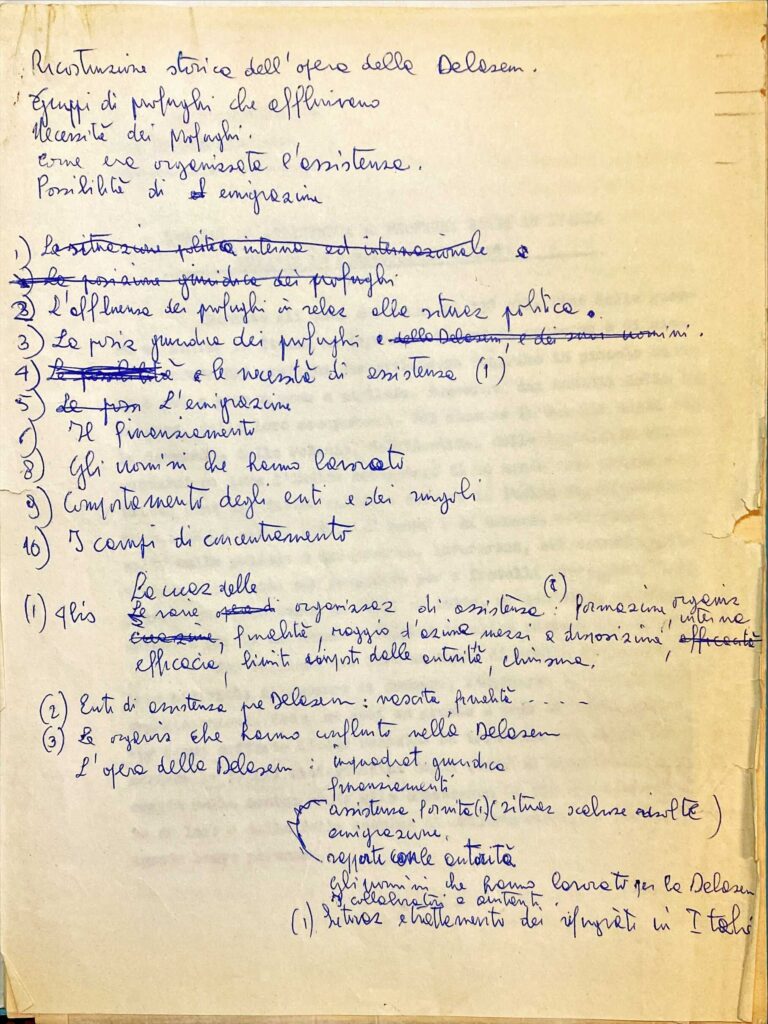 Ricostruzione storica dell'opera della Delasem.
Gruppi di profughi che affluivano
Necessità dei profughi.
Come era organizzata l'assistenza.
Possibilità di emigrazione
1) La situazione politica interna ed internazionale e
La posizione giuridica dei profughi
2) L'affluenza dei profughi in relaz alla situaz politica.
3) La posiz giuridica dei profughi e della Delasem e dei suoi uomini.
4) Le possibilità e le necessità di assistenza (1)
5) Le poss L'emigrazione
7) Il finanziamento
8) Gli uomini che hanno lavorato
9) Comportamento degli enti e dei singoli
10) I campi di concentramento
La creaz delle
(1) Le varie organizzaz di assistenza: Formazione, organiz interna
creazione, finalità, raggio d'azione mezzi a disposizione, efficacità
efficacia, limiti imposti dalle autorità, chiusura.
(2) Enti di assistenza pre Delasem: nascita finalità - - - -
(3) Le organiz che hanno confluito nella Delasem
L'opera della Delasem: inquadrat giuridica
finanziamenti
assistenza fornita (1) (situaz scabrose risolte)
emigrazione.
rapporti con le autorità
gli uomini che hanno lavorato per la Delasem
I collaboratori e aiutanti
(1) Situaz e trattamento dei rifugiati in Italia